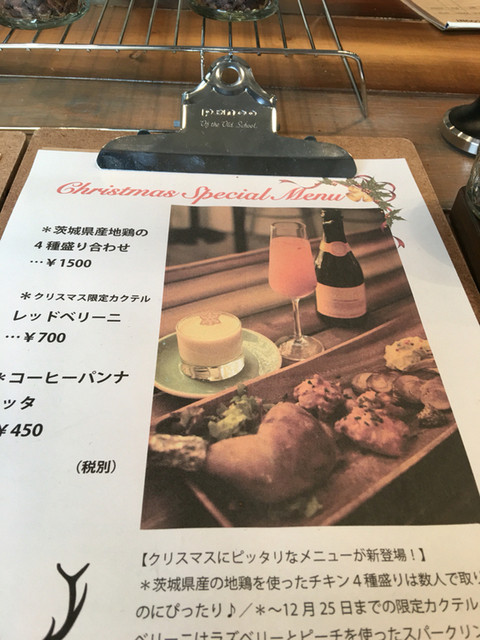 penco
By the Old School.
Christmas Special Menu
＊茨城県産地鶏の
４種盛り合わせ
…￥1500
＊クリスマス限定カクテル
レッドベリーニ
…￥700
＊コーヒーパンナ
ッタ
￥450
（税別）
【クリスマスにピッタリなメニューが新登場！】
＊茨城県産の地鶏を使ったチキン４種盛りは数人で取り
のにぴったり♪／＊～12月25日までの限定カクテル
ベリーニはラズベリーとピーチを使ったスパークリン